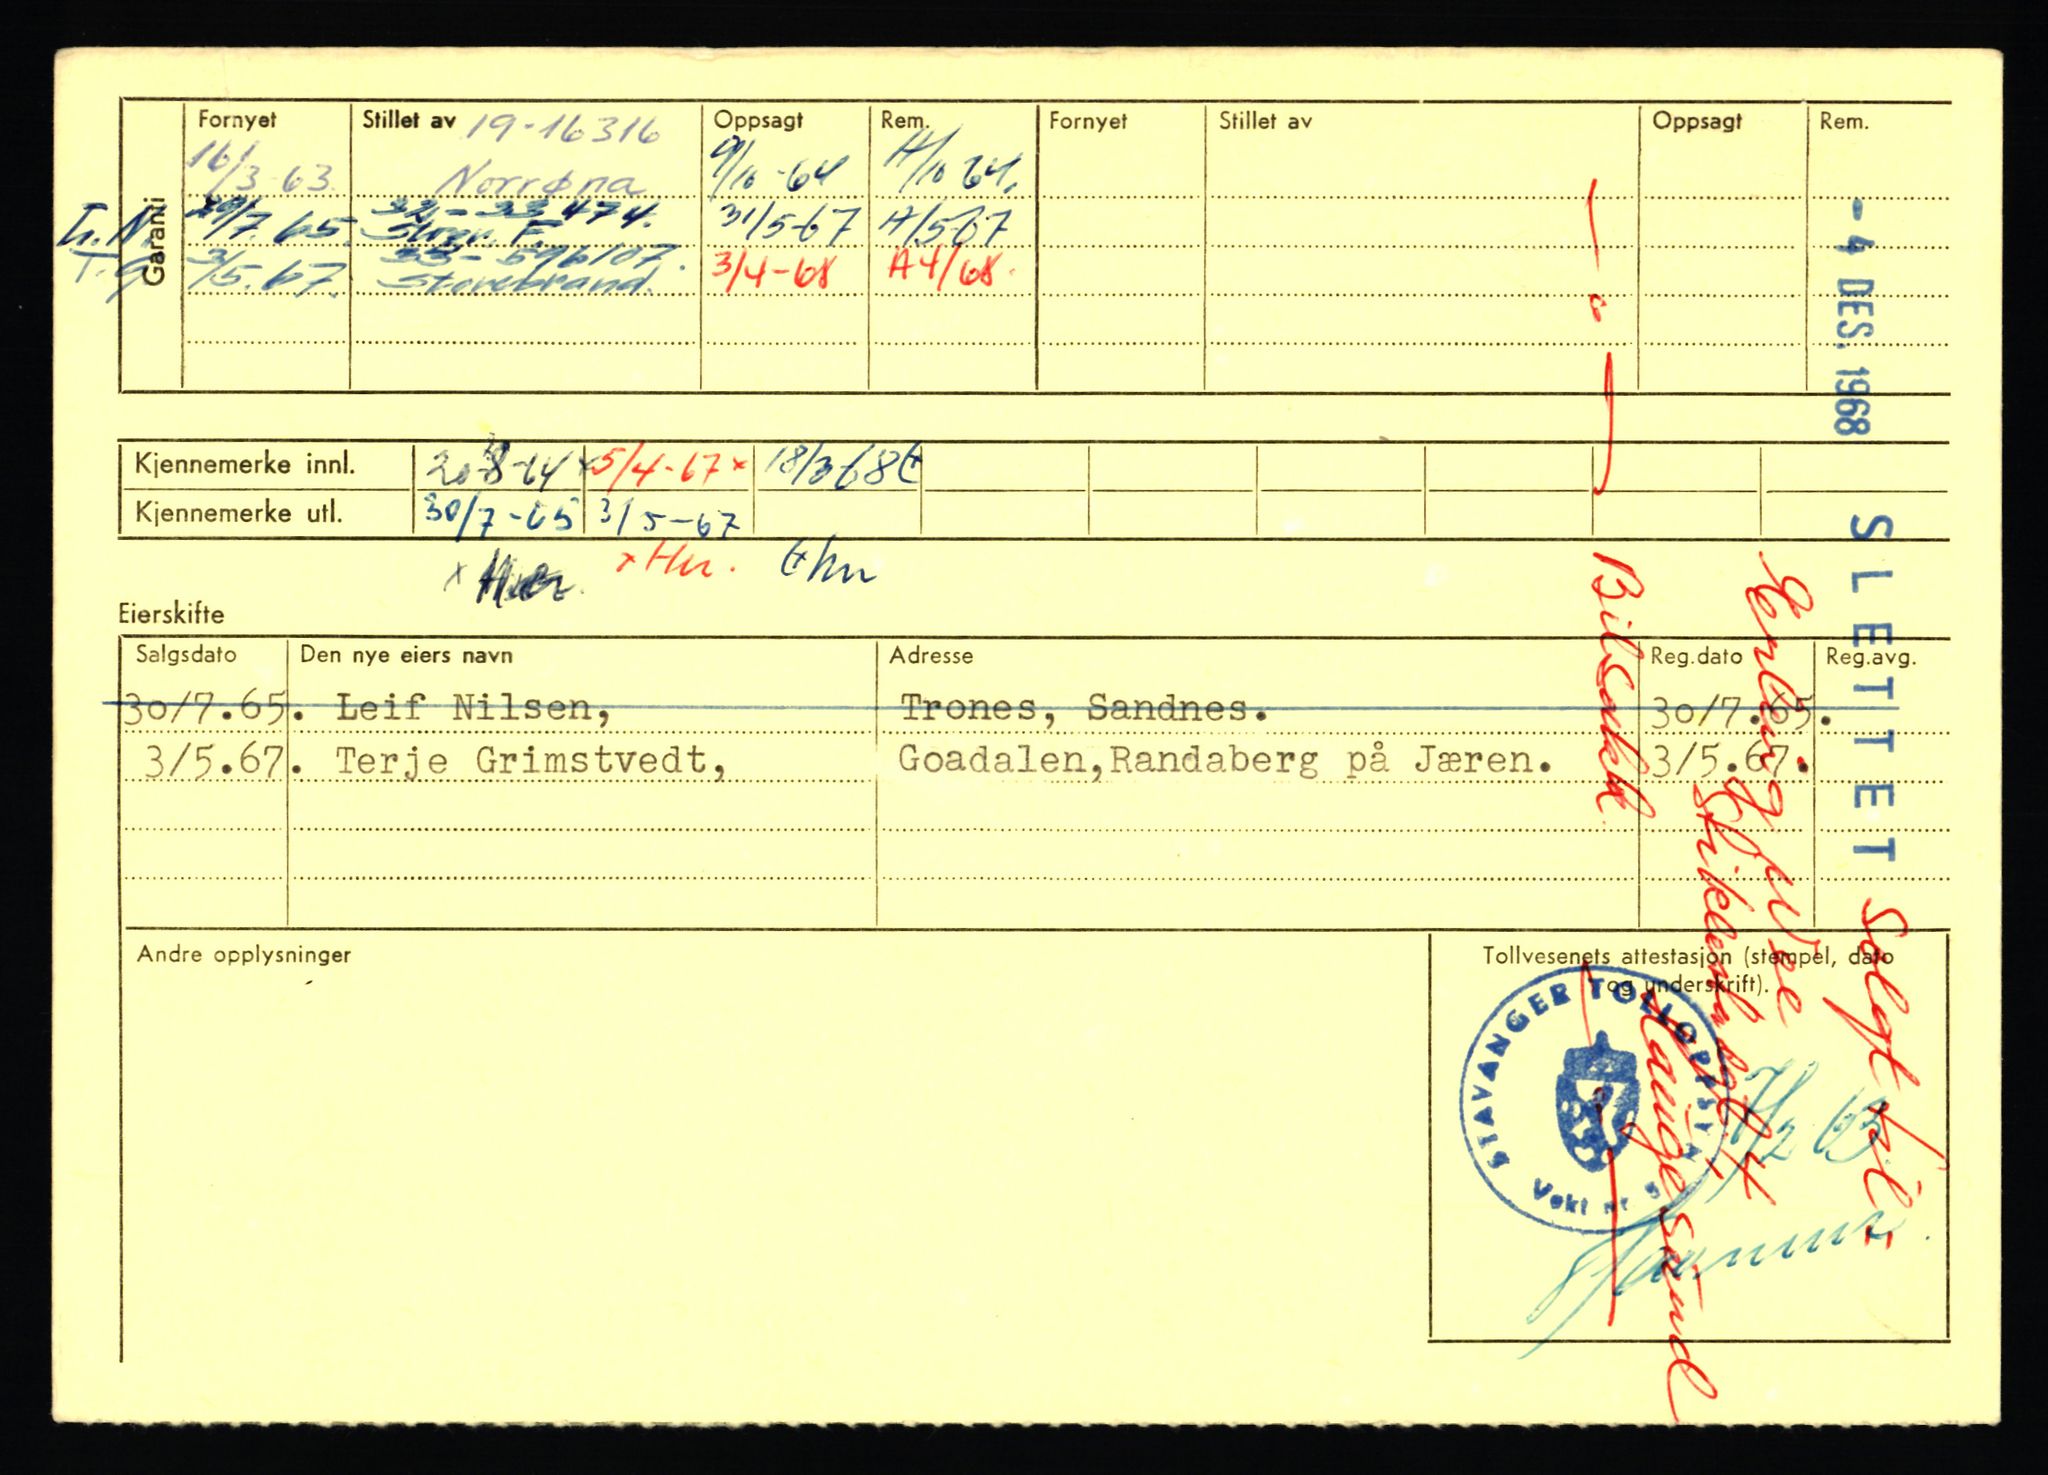 Garanti
Fornyet Stillet av Oppsagt Rem. Fornyet Stillet av Oppsagt Rem.
19-16316
16/3-63. Norrøna 9/10-64 A/10 64.
L.N. 29/7.65. 32-33474. 31/5-67 A/5-67
T.g. 3/5.67. 33-596107. Storebrand. 3/4-68 A4/68.
Kjennemerke innl. 20-8-64 x 5/4-67 x 18/3 68
Kjennemerke utl. 30/7-65 3/5-67
x Hn.
Eierskifte
Salgsdato Den nye eiers navn Adresse Reg.dato Reg.avg.
30/7.65. Leif Nilsen, Trones, Sandnes. 30/7.65.
3/5.67. Terje Grimstvedt, Goadalen,Randaberg på Jæren. 3/5.67.
Andre opplysninger
Tollvesenets attestasjon (stempel, dato
og underskrift).
STAVANGER TOLLOPPSYN
Vakt nr 5
7/2 63
- 4 DES. 1968
SLETTET
Solgt til:
Erling Wee
Haugesund
Bilsakk.